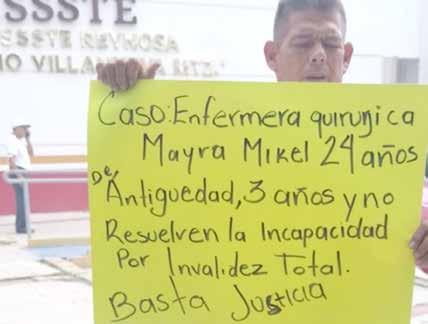 SSSTE
ISSSTE REYNOSA
Caso: Enfermera quirurjica
Mayra Mikel 24 años
De Antiguedad, 3 años y no
Resuelven la Incapacidad
Por Invalidez Total.
Basta Justicia